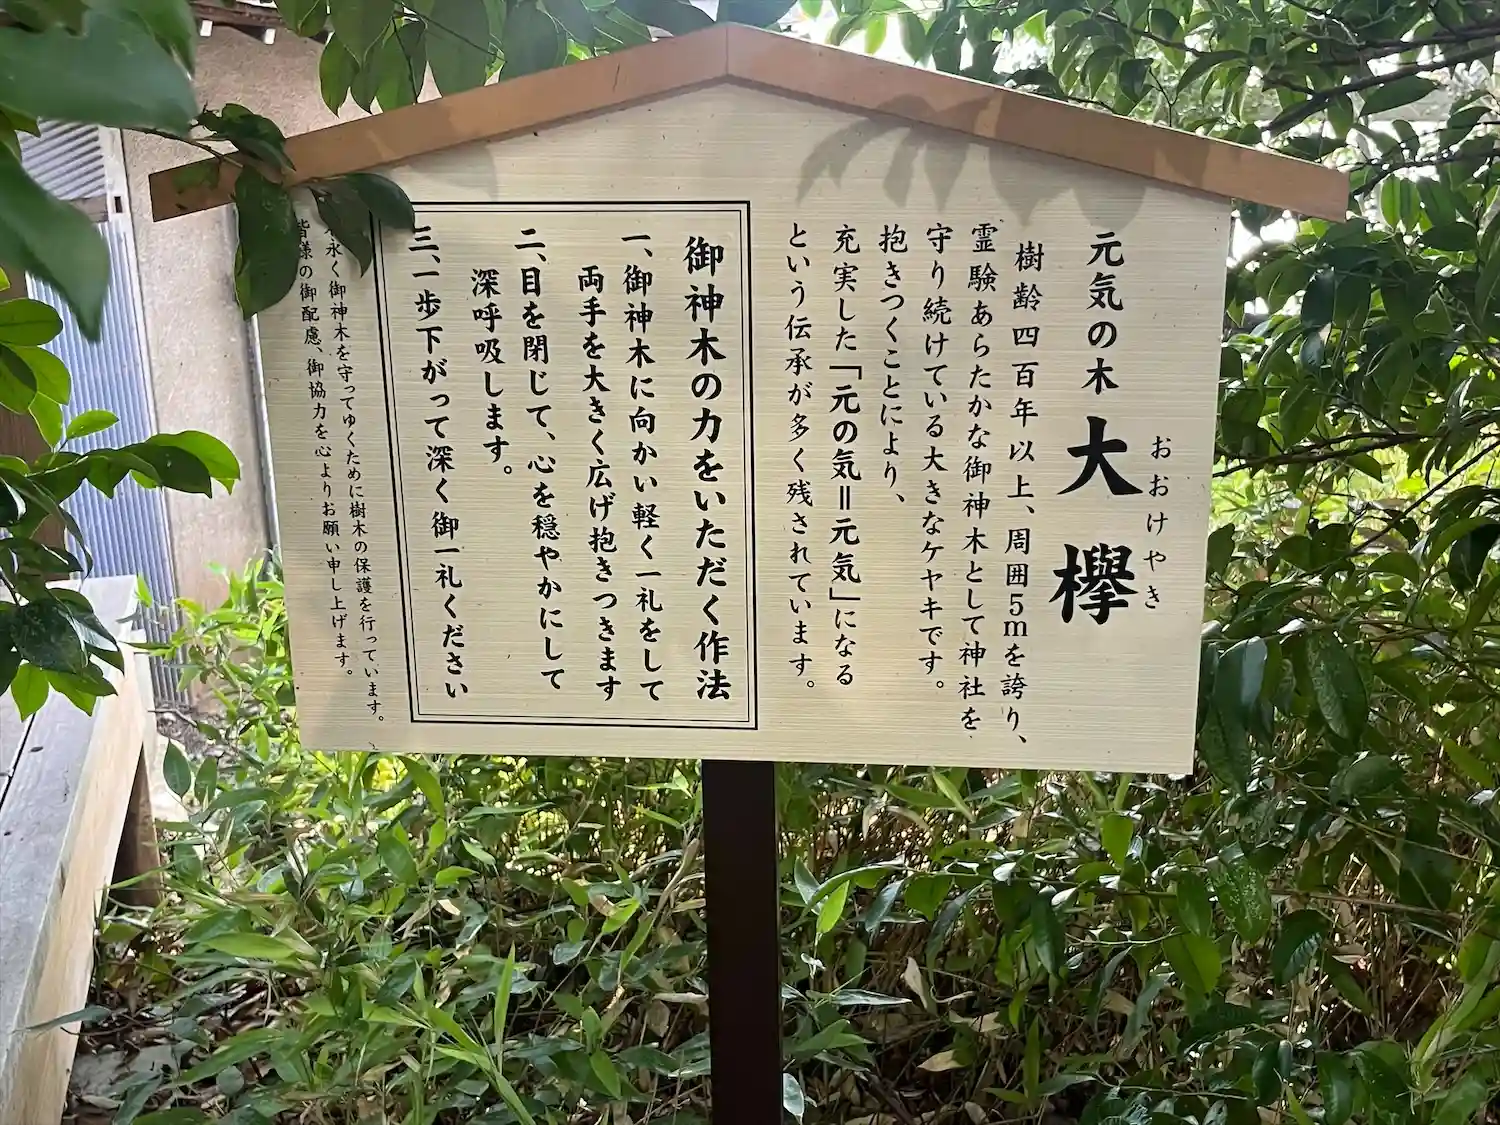 元気の木 大欅
おおけやき
樹齢四百年以上、周囲5mを誇り、
霊験あらたかな御神木として神社を
守り続けている大きなケヤキです。
抱きつくことにより、
充実した「元の気=元気」になる
という伝承が多く残されています。
御神木の力をいただく作法
一、御神木に向かい軽く一礼をして
両手を大きく広げ抱きつきます
二、目を閉じて、心を穏やかにして
深呼吸します。
三、一歩下がって深く御一礼ください
永く御神木を守ってゆくために樹木の保護を行っています。
皆様の御配慮、御協力を心よりお願い申し上げます。